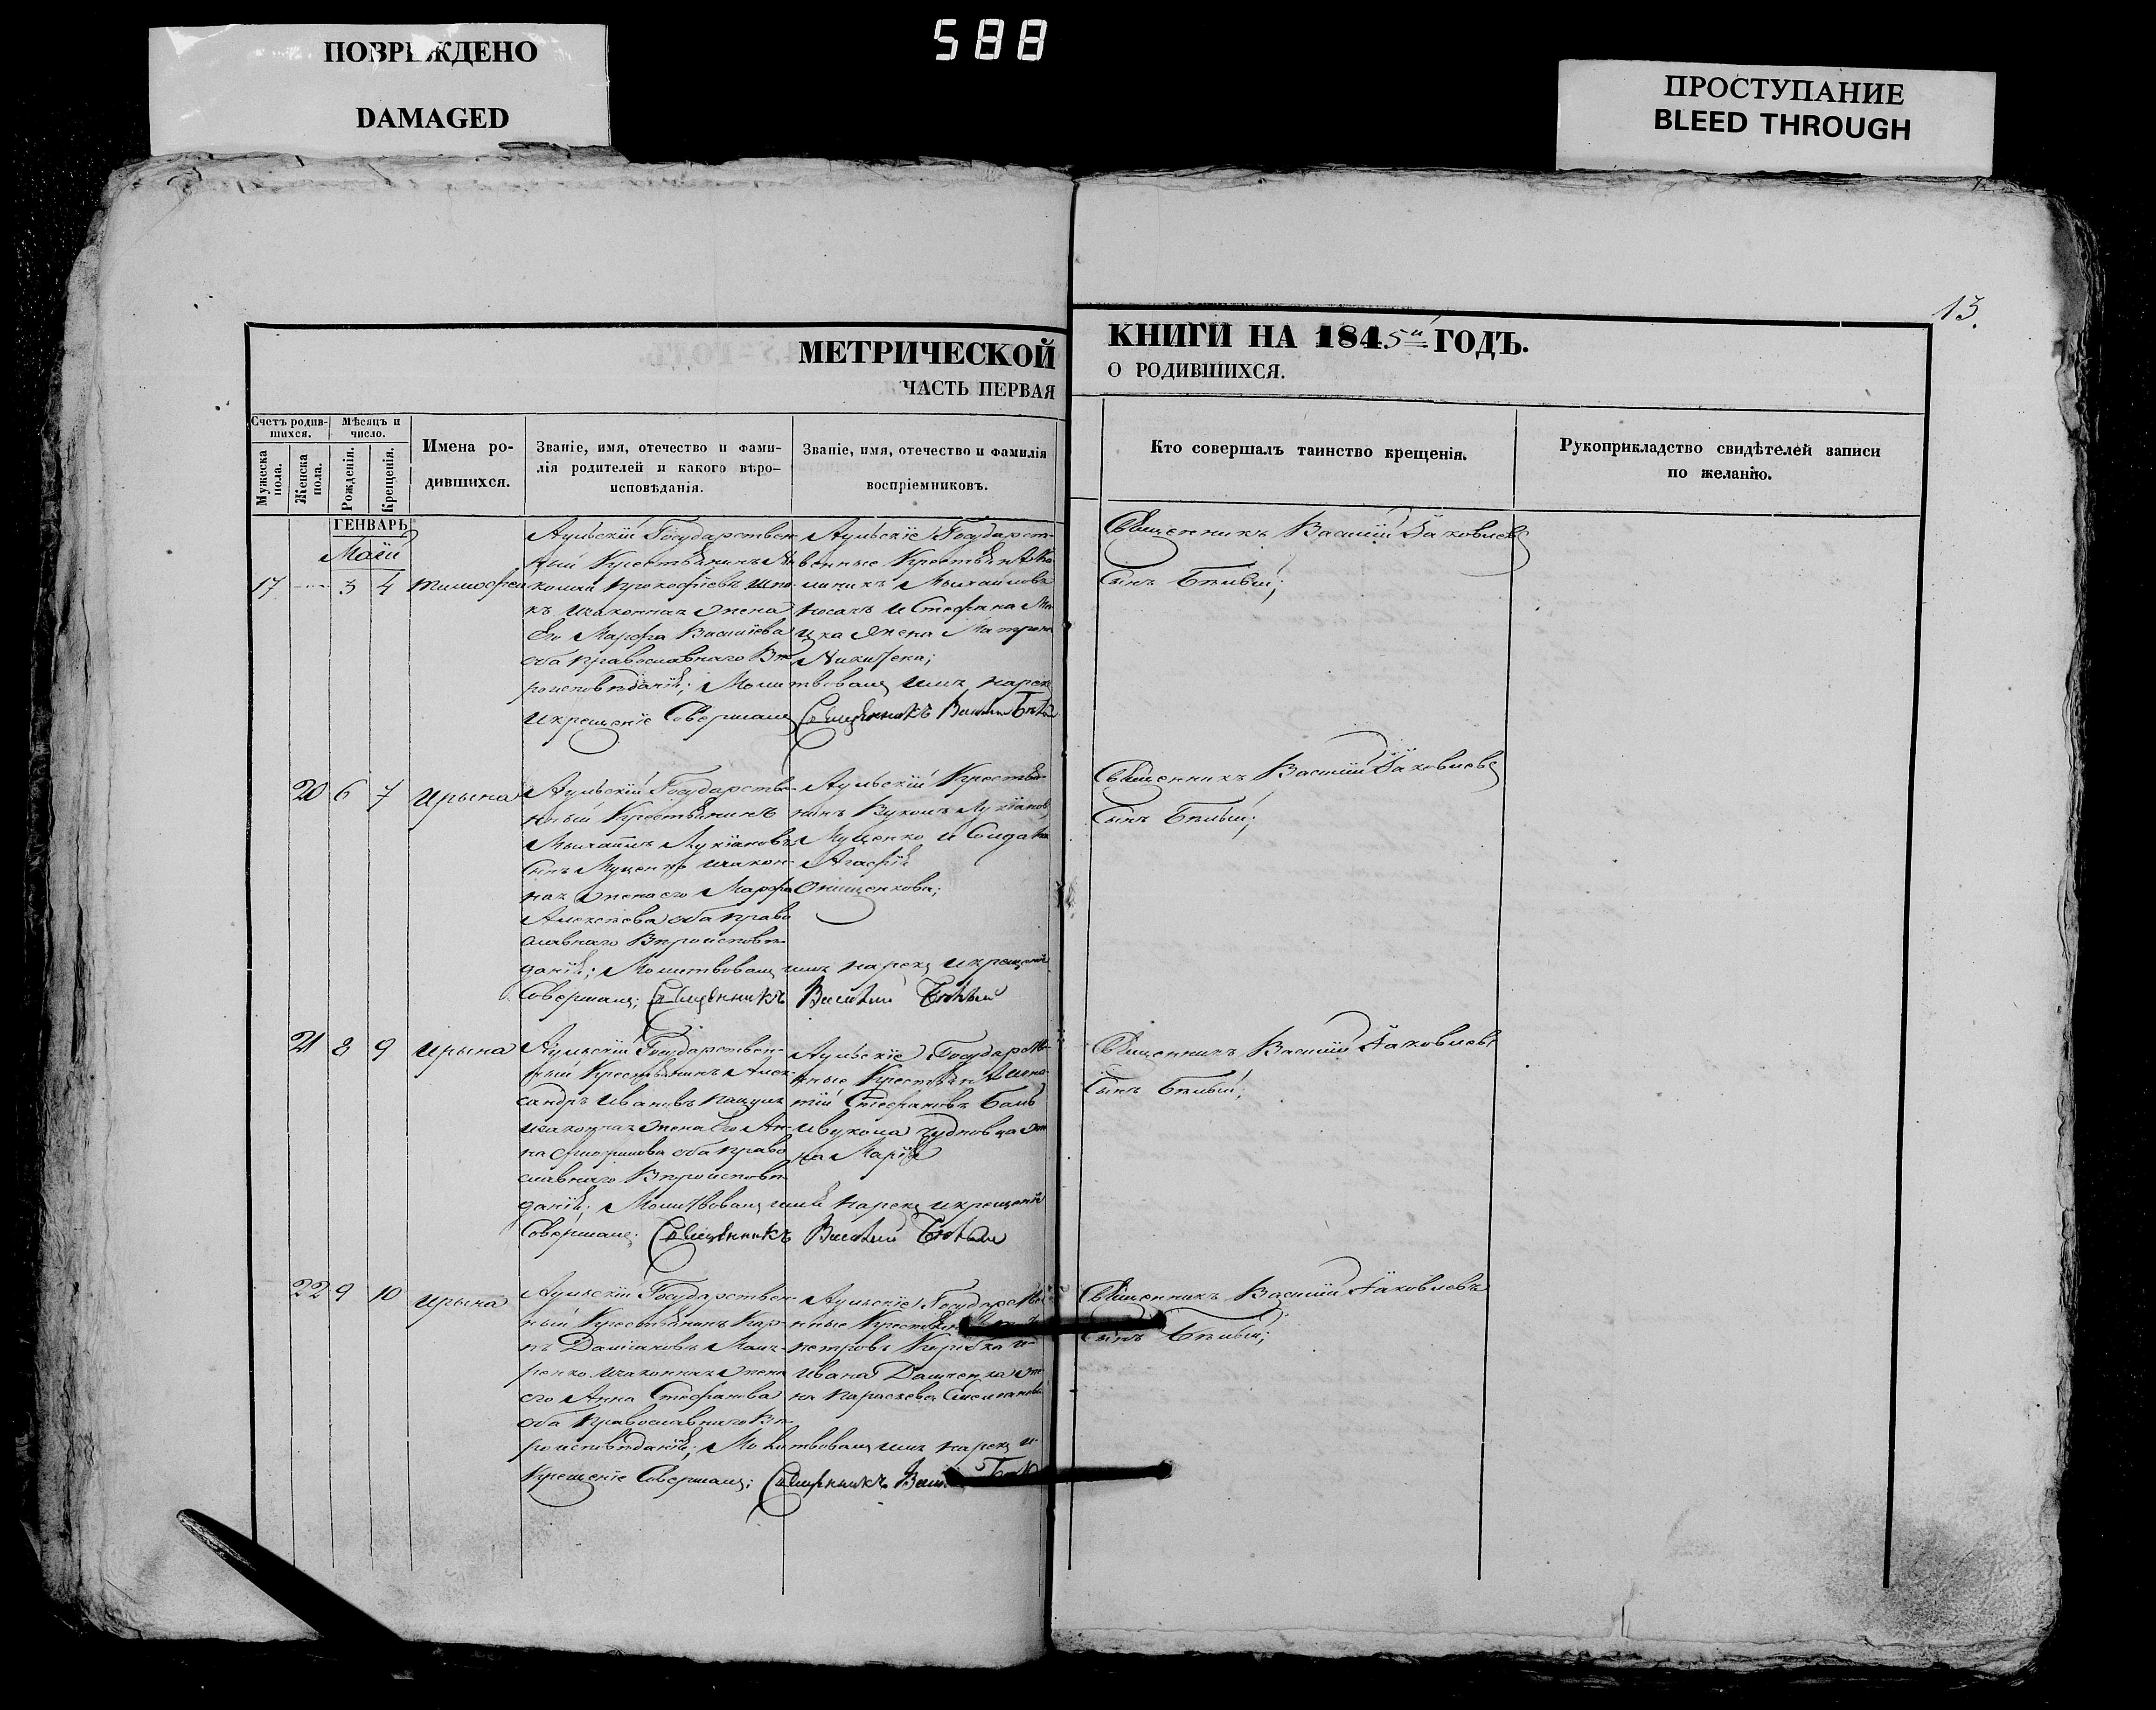 ПОВРЕЖДЕНО
DAMAGED
588
ПРОСТУПАНИЕ
BLEED THROUGH
13.
МЕТРИЧЕСКОЙ
ЧАСТЬ ПЕРВАЯ
КНИГИ НА 1845й ГОДЪ.
О РОДИВШИХСЯ.
Счетъ родив-
шихся.
Мужеска
пола.
Женска
пола.
Мѣсяцъ и
число.
Рожденія.
Крещенія.
Имена ро-
дившихся.
Званіе, имя, отечество и фами-
лія родителей и какого вѣро-
исповѣданія.
Званіе, имя, отечество и фамилія
воспріемниковъ.
Кто совершалъ таинство крещенія.
Рукоприкладство свидѣтелей записи
по желанію.
ГЕНВАРЬ
Маій
17 3 4 Тимофей
Аульскій Государствен
ный Крестьянинъ
Прокофіевъ
изаконная жена
Его Марфа Василіева
оба православнаго Вѣ
роисповѣданія; Молитвовалъ имя нарекъ
икрещеніе Совершалъ Священникъ Василій Бѣлый
Аульскіе Государст-
венные Крестьяне
Михайловъ
Носачъ и Стефана
жена Матрона
Священникъ Василій Яковлевъ
Сынъ Бѣлый;
20 6 7 Ирына
Аульскій Государстве-
нный Крестьянинъ
Михаилъ Лукіановъ
Сынъ Муценко изакон-
ная жена его Марфа
Алексѣева оба право
славнаго Вѣроисповѣ-
данія; Молитвовалъ имя нарекъ икрещеніе
Совершалъ; Священникъ Василій Бѣлый
Аульскій Крестья-
нинъ Вуколъ Лукіановъ
Муценко и Солдатка
Агафія
Онищенкова;
Священникъ Василій Яковлевъ
Сынъ Бѣлый;
21 8 9 Ирына
Аульскій Государствен-
ный Крестьянинъ Алек-
сандръ Ивановъ
изаконная жена Его Ан-
на оба право
славнаго Вѣроисповѣ
данія; Молитвовалъ имя нарекъ икрещеніе
Совершалъ; Священникъ Василій Бѣлый
Аульскіе Государств-
нные Крестьяне Игна-
тій Стефановъ
ивукола
на Марія
Священникъ Василій Яковлевъ
Сынъ Бѣлый;
22 9 10 Ирына
Аульскій Государствен-
ный Крестьянинъ Кар-
пъ
изаконная жена
его Анна Стефанова
оба православнаго Вѣ
роисповѣданія; Молитвовалъ имя нарекъ и
Крещеніе Совершалъ; Священникъ
Аульскіе Государстве-
нные Крестьяне
петровъ и
Ивана Дащенка же-
на параскева
Священникъ Василій Яковлевъ
Сынъ Бѣлый;